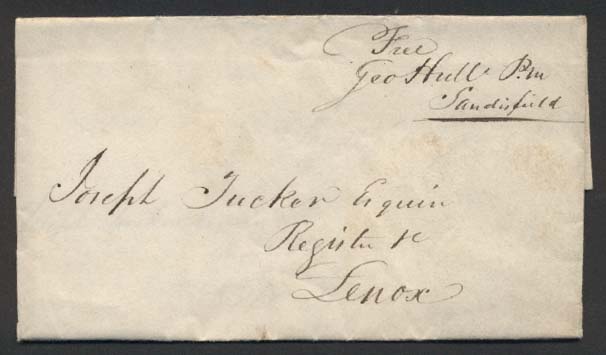 Free
Geo Hull P.m
Sandisfield
Joseph Tucker Esquir
Register &c
Lenox